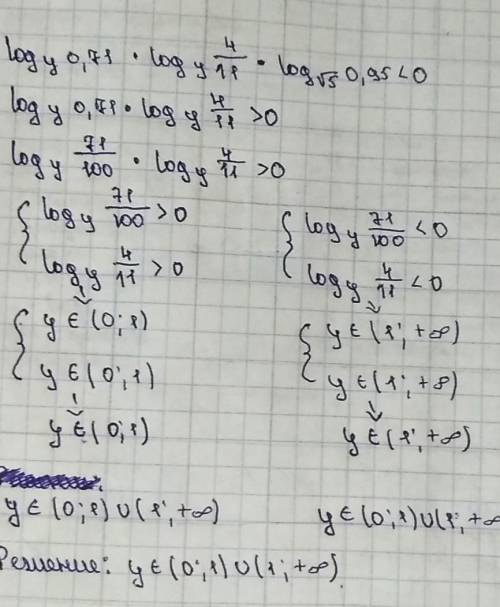 log y 0,71 · log y 4/11 · log √5 0,95 < 0
log y 0,71 · log y 4/11 > 0
log y 71/100 · log y 4/11 > 0
{ log y 71/100 > 0
log y 4/11 > 0
{ y ∈ (0; 1)
y ∈ (0; 1)
y ∈ (0; 1)
{ log y 71/100 < 0
log y 4/11 < 0
{ y ∈ (1; +∞)
y ∈ (1; +∞)
y ∈ (1; +∞)
y ∈ (0; 1) ∪ (1; +∞)
y ∈ (0; 1) ∪ (1; +∞
Решение: y ∈ (0; 1) ∪ (1; +∞).